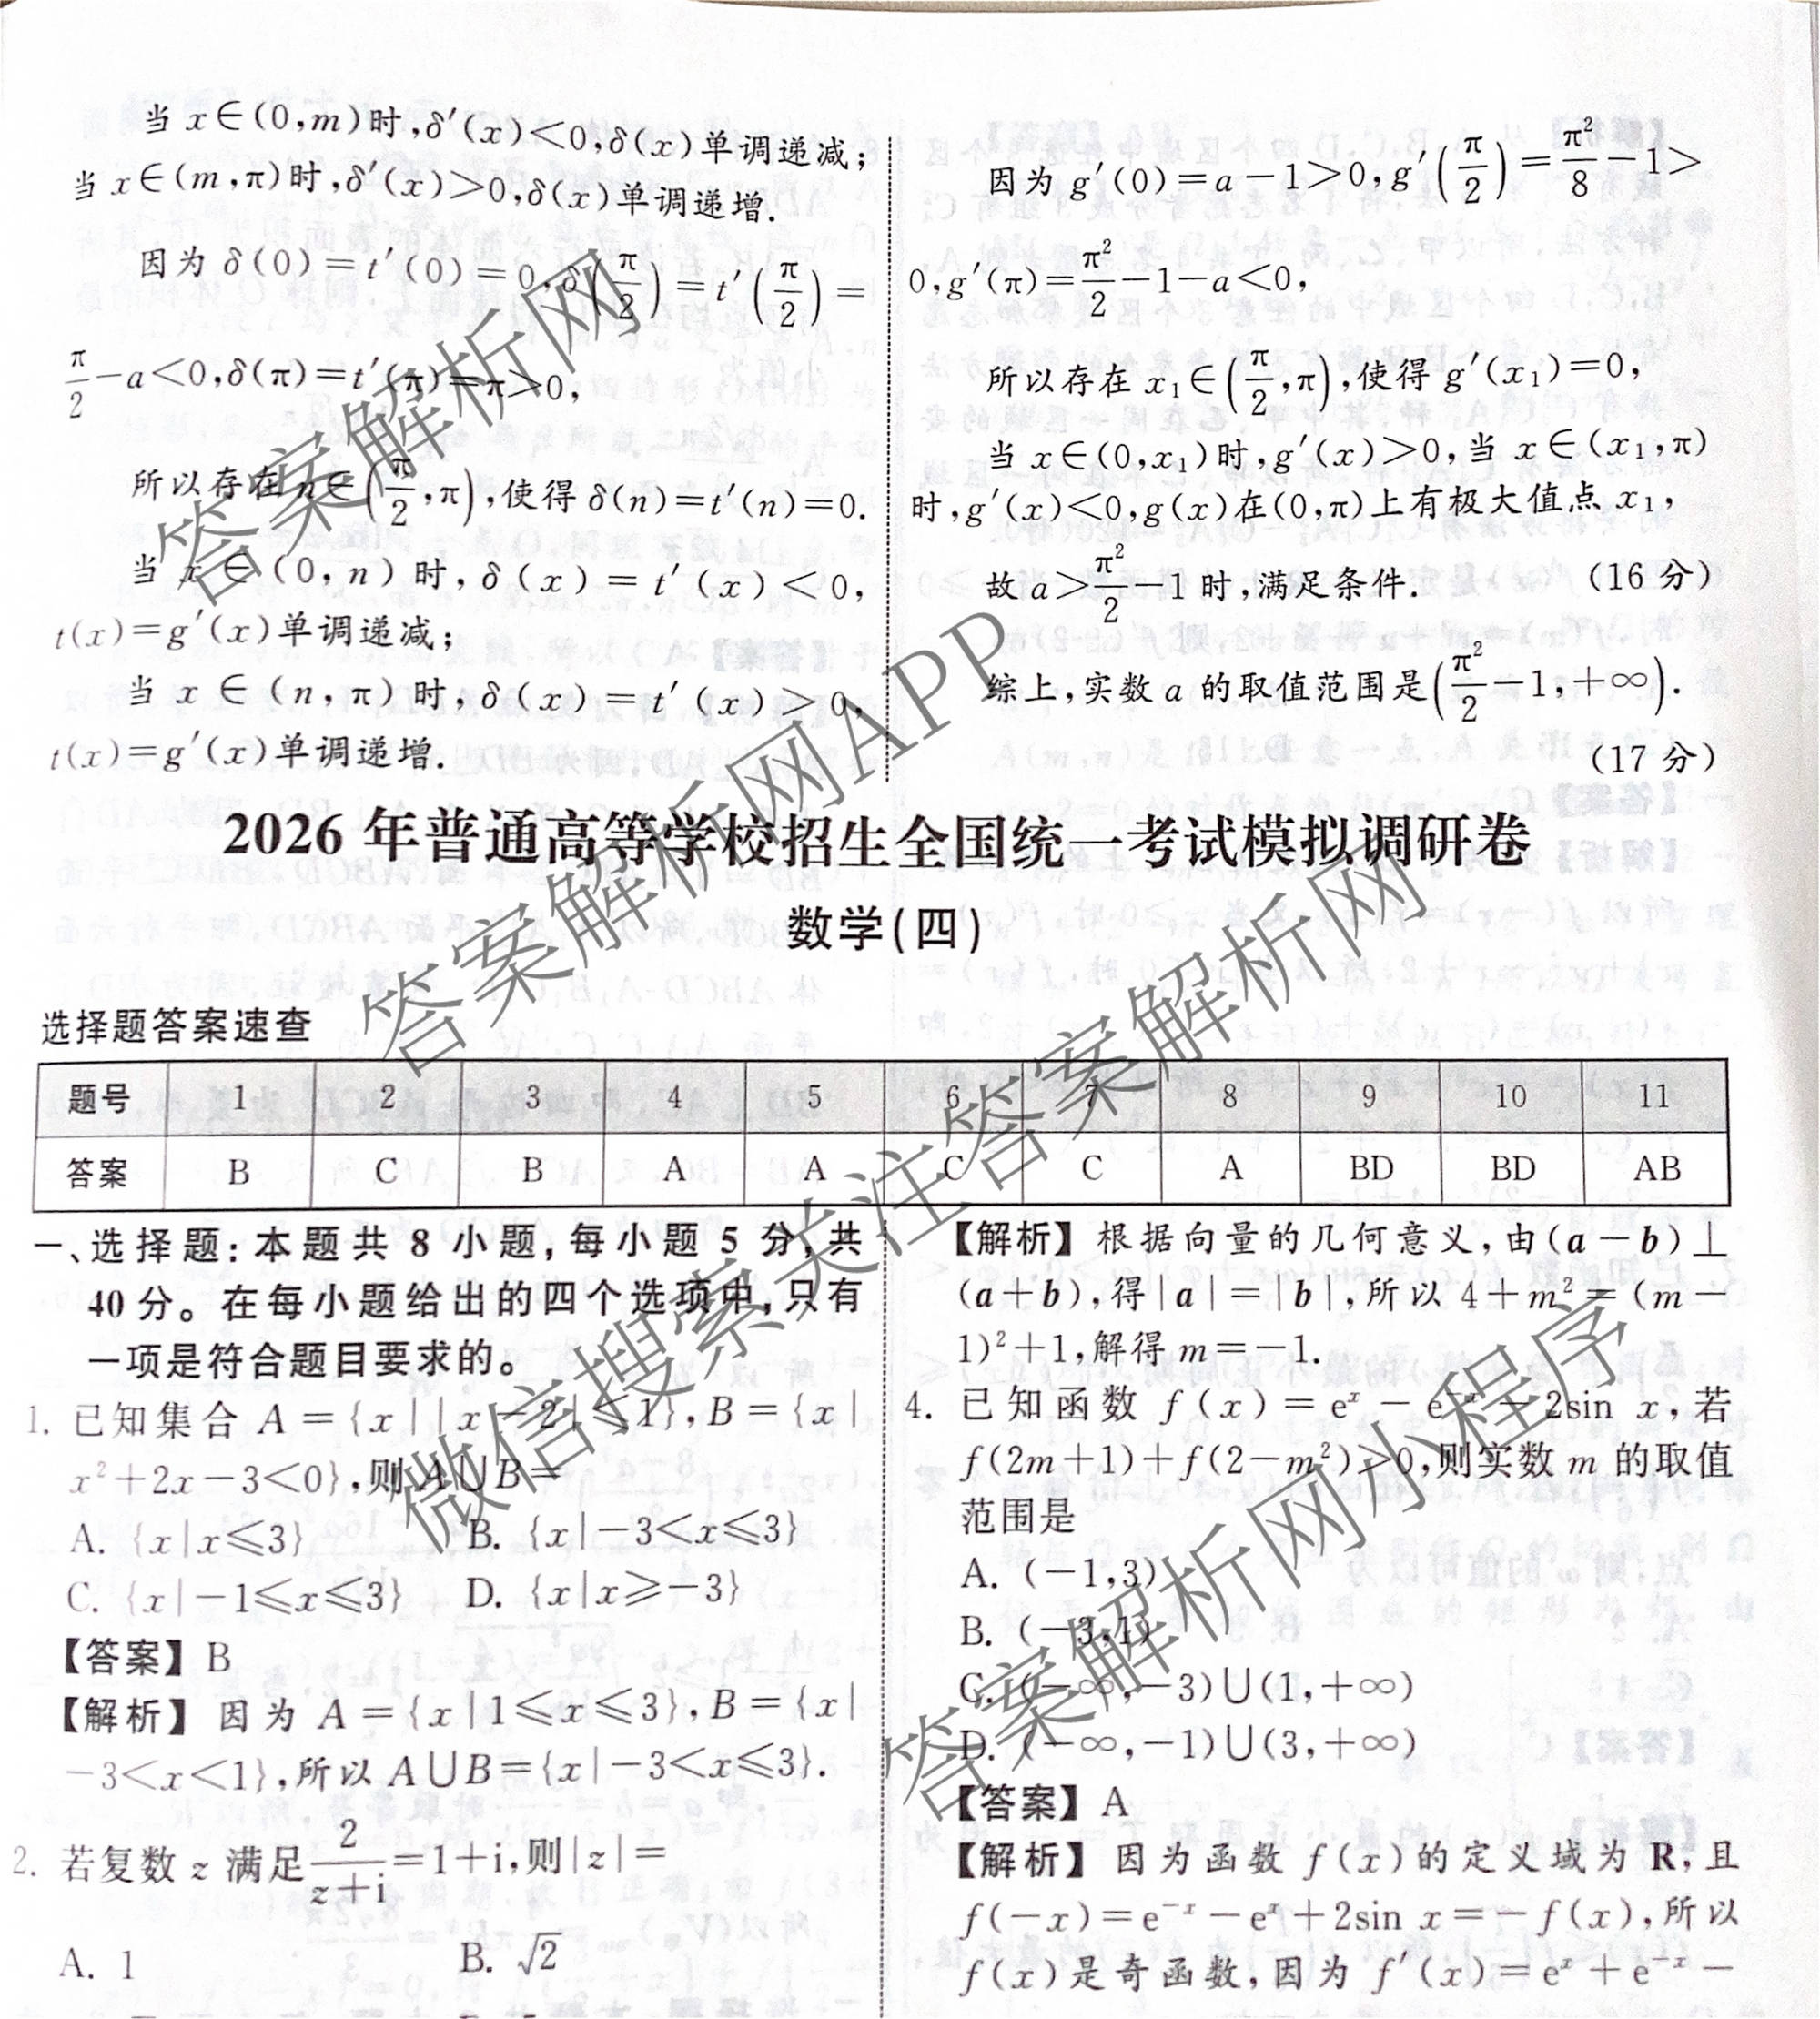 当 x∈(0,m)时,δ′(x)<0,δ(x)单调递减;
当 x∈(m,π)时,δ′(x)>0,δ(x)单调递增.
因为 δ(0)=t′(0)=0,δ(π/2)=t′(π/2)=
π/2-a<0,δ(π)=t′(π)=π>0,
所以存在 n∈(π/2,π),使得 δ(n)=t′(n)=0.
当 x∈(0,n)时,δ(x)=t′(x)<0,
t(x)=g′(x)单调递减;
当 x∈(n,π)时,δ(x)=t′(x)>0,
t(x)=g′(x)单调递增.
因为 g′(0)=a-1>0,g′(π/2)=π²/8-1>
0,g′(π)=π²/2-1-a<0,
所以存在 x₁∈(π/2,π),使得 g′(x₁)=0,
当 x∈(0,x₁)时,g′(x)>0,当 x∈(x₁,π)
时,g′(x)<0,g(x)在(0,π)上有极大值点 x₁,
故 a>π²/2-1 时,满足条件. (16 分)
综上,实数 a 的取值范围是(π²/2-1,+∞).
(17 分)
2026 年普通高等学校招生全国统一考试模拟调研卷
数学(四)
选择题答案速查
题号 1 2 3 4 5 6 7 8 9 10 11
答案 B C B A A C C A BD BD AB
一、选择题:本题共 8 小题,每小题 5 分,共
40 分。在每小题给出的四个选项中,只有
一项是符合题目要求的。
1. 已知集合 A={x||x-2|≤1},B={x|
x²+2x-3<0},则 A∪B=
A. {x|x≤3} B. {x|-3<x≤3}
C. {x|-1≤x≤3} D. {x|x≥-3}
【答案】B
【解析】因为 A={x|1≤x≤3},B={x|
-3<x<1},所以 A∪B={x|-3<x≤3}.
2. 若复数 z 满足2/(z+i)=1+i,则|z|=
A. 1 B. √2
【解析】根据向量的几何意义,由(a-b)⊥
(a+b),得|a|=|b|,所以 4+m²=(m-
1)²+1,解得 m=-1.
4. 已知函数 f(x)=eˣ-e⁻ˣ-2sin x,若
f(2m+1)+f(2-m²)>0,则实数 m 的取值
范围是
A. (-1,3)
B. (-3,1)
C. (-∞,-3)∪(1,+∞)
D. (-∞,-1)∪(3,+∞)
【答案】A
【解析】因为函数 f(x)的定义域为 R,且
f(-x)=e⁻ˣ-eˣ+2sin x=-f(x),所以
f(x)是奇函数,因为 f′(x)=eˣ+e⁻ˣ-
答案解析网
答案解析网APP
微信搜索关注答案解析网
答案解析网小程序